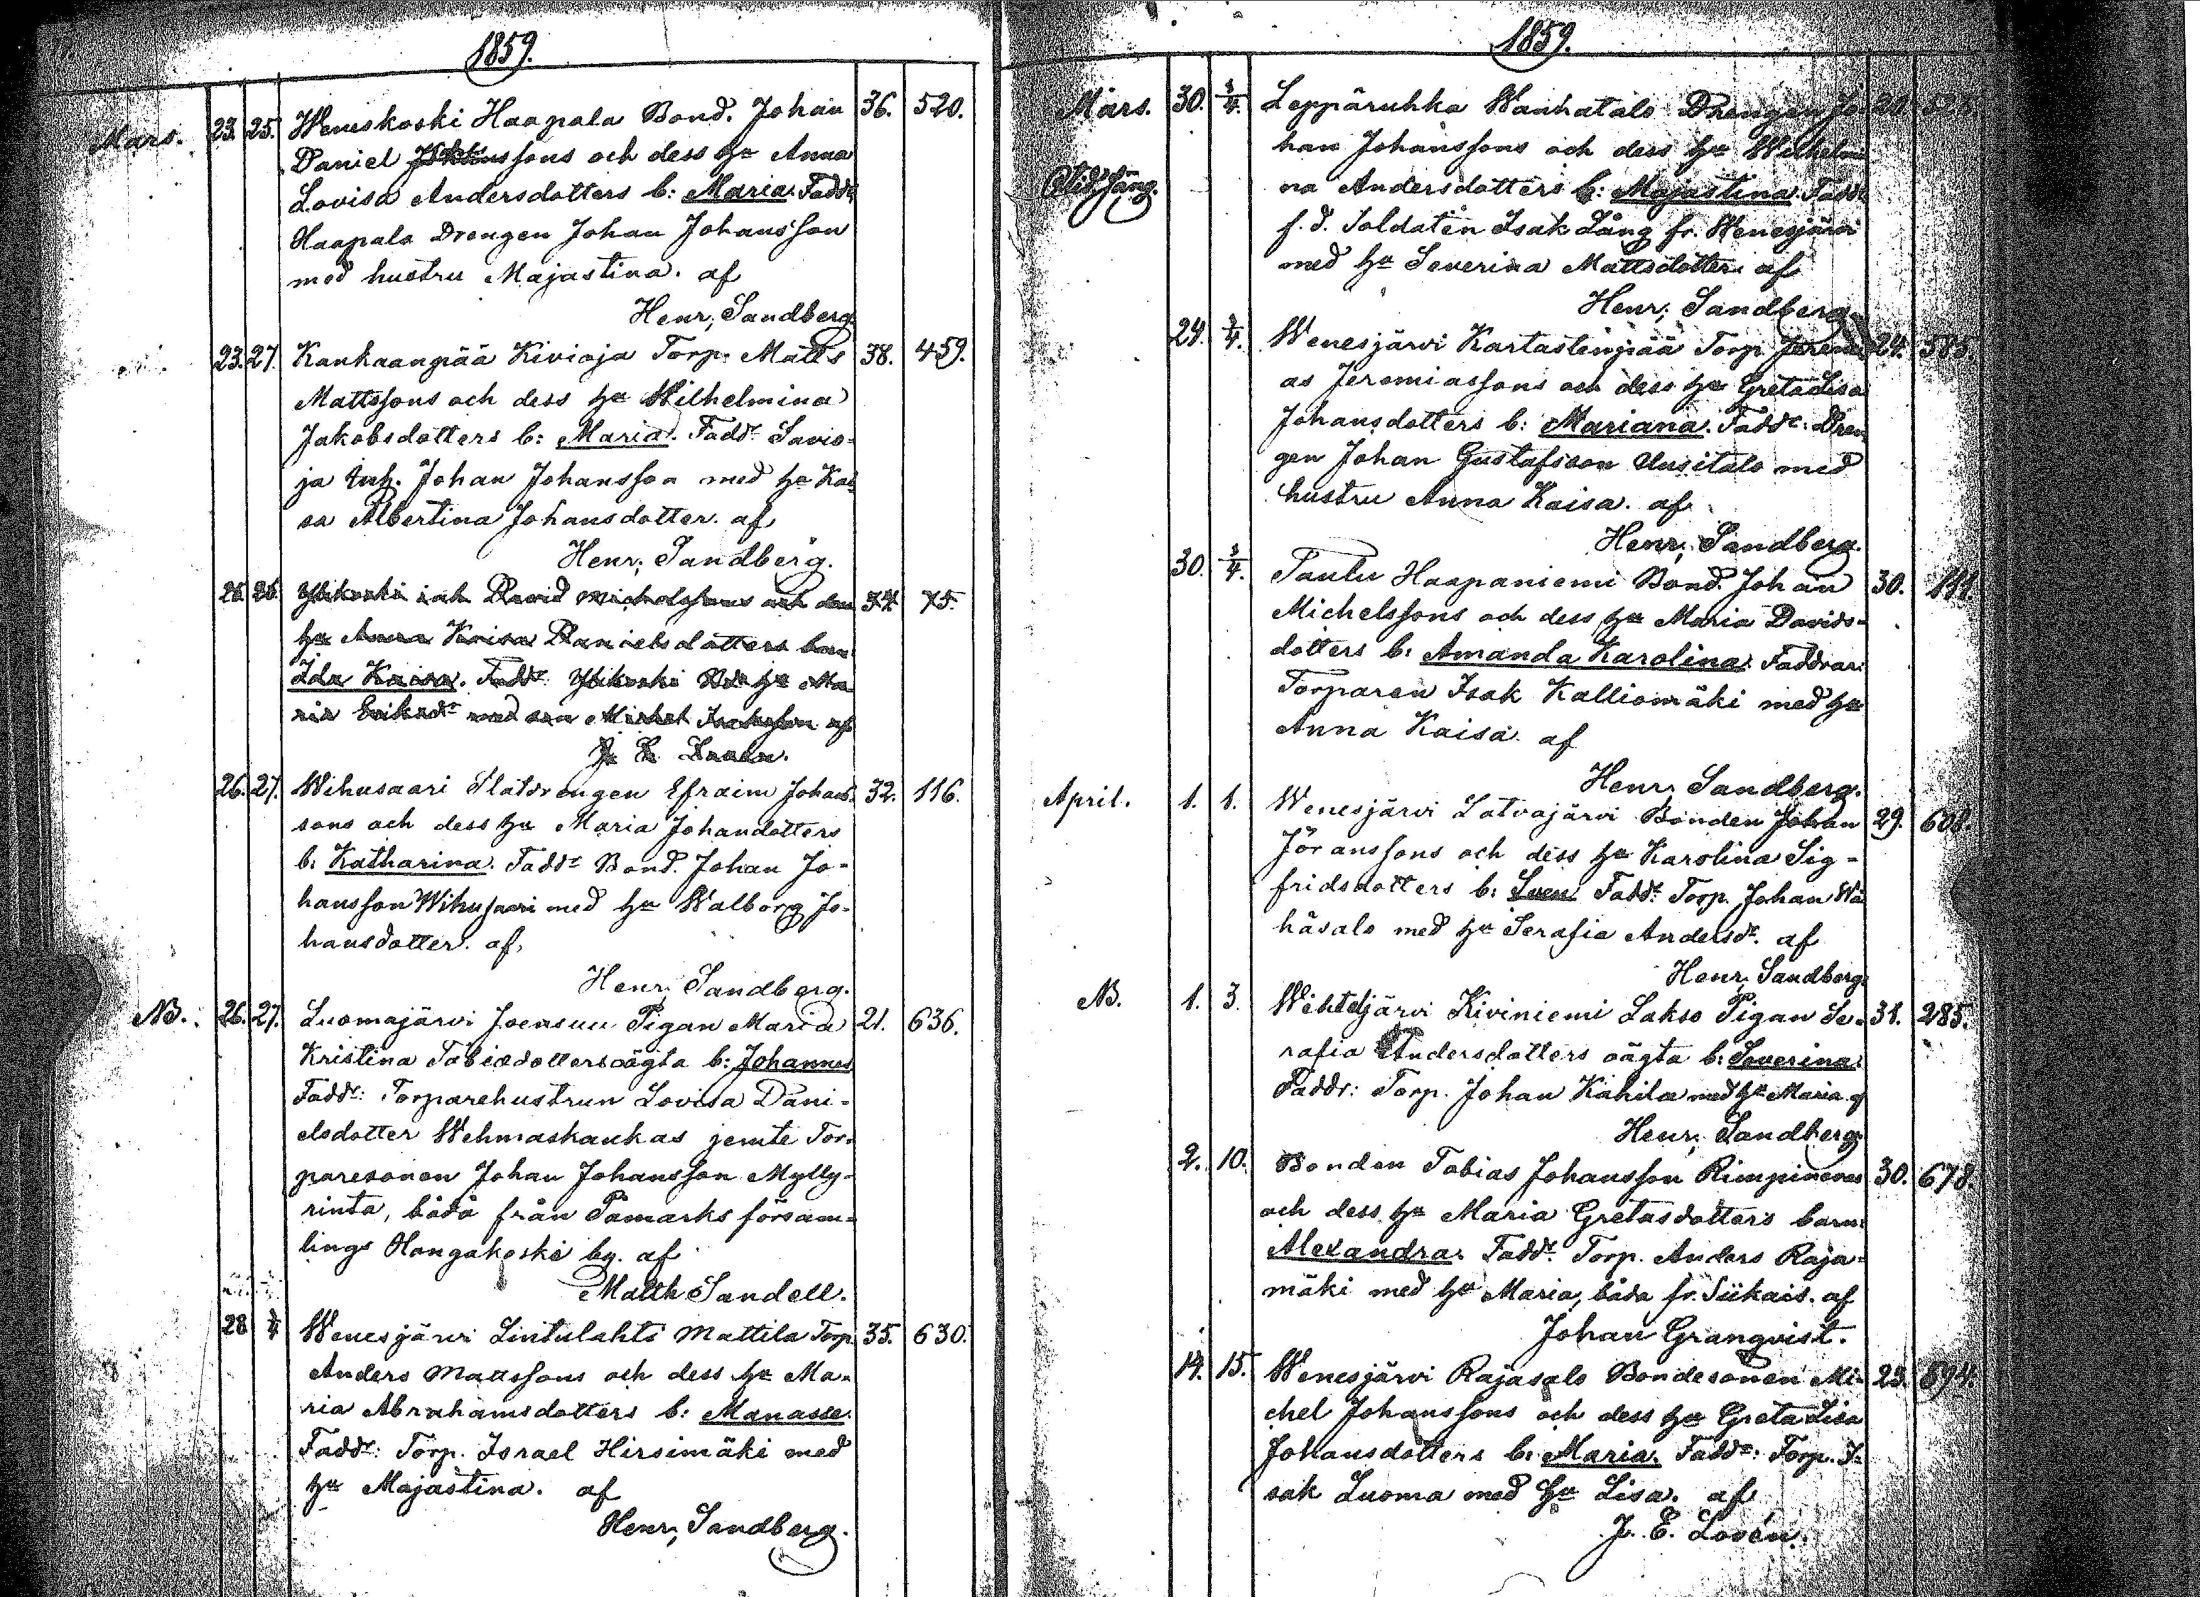 1859.
Mars. 23. 25. Weneskoski Haapala Bond. Johan 36. 520.
Daniel Johanssons och dess hu Anna
Lovisa Andersdotters b: Maria. Faddr
Haapala Drengen Johan Johansson
med hustru Majastina. af
Henr. Sandberg.
23. 27. Kankaanpää Kivioja Torp. Matts 38. 459.
Mattssons och dess hu Wilhelmina
Jakobsdotters b: Maria. Faddr Savio-
ja Inh. Johan Johansson med hu Kai
sa Albertina Johansdotter. af
Henr. Sandberg.
25. 26. Ylikoski inh David Michelssons och dess 44. 75.
hu Anna Kaisa Danielsdotters barn
Ida Kaisa. Faddr Ylikoski Bde hu Ma
ria Eriksdr med son Michel Isaksson af
J. E. Lovén.
26. 27. Wihusaari Slatdrengen Efraim Johans- 32. 116.
sons och dess hu Maria Johandotters
b: Katharina. Faddr Bond. Johan Jo-
hansson Wihusaari med hu Walborg Jo-
hansdotter. af
Henr. Sandberg.
NB. 26. 27. Luomajärvi Joensuu Pigan Maria 21. 636.
Kristina Tobiedotters oägta b: Johannes
Faddr: Torparehustrun Lovisa Dani-
elsdotter Wehmaskankas jemte Tor-
paresonen Johan Johansson Mylly-
rinta, båda från Påmarks försam-
lings Hongakoski by. af
Matth Sandell.
28 3/4 Wenesjärvi Lintulahti Mattila Torp. 35. 630.
Anders Mattssons och dess hu Ma-
ria Abrahamsdotters b: Manasse.
Faddr: Torp. Israel Hirsimäki med
hu Majastina. af
Henr. Sandberg.
1859.
Mars. 30. 3/4. Leppäruhka Wanhatalo Drengen Jo-
han Johanssons och dess hu Wilhelmi
na Andersdotters b: Majastina. Faddr
f. d. Soldaten Isak Lång fr. Wenesjärvi
med hu Severina Mattsdotter. af
Henr. Sandberg.
24. 3/4. Wenesjärvi Kartastenpää Torp Jeremi 24. 585.
as Jeremiassons och dess hu Greta Lisa
Johansdotters b: Mariana. Faddr: Dren
gen Johan Gustafsson Uusitalo med
hustru Anna Kaisa. af
Henr. Sandberg.
30. 3/4. Tautu Haapaniemi Bond. Johan 30. 111.
Michelssons och dess hu Maria Davids-
dotters b: Amanda Karolina. Faddrar:
Torparen Isak Kalliomäki med hu
Anna Kaisa. af
Henr. Sandberg.
April. 1. 1. Wenesjärvi Latvajärvi Bonden Johan 29. 608.
Jöranssons och dess hu Karolina Sig-
fridsdotters b: Sven. Faddr. Torp. Johan Wä
häsalo med hu Serafia Andersdr. af
Henr. Sandberg.
NB. 1. 3. Wihteljärvi Kiviniemi Lakso Pigan Se- 31. 285.
rafia Andersdotters oägta b: Severina.
Faddr: Torp. Johan Kahila med hu Maria. af
Henr. Sandberg.
2. 10. Bonden Tobias Johansson Rimpinenes 30. 678.
och dess hu Maria Gretasdotters barn:
Alexandra. Faddr. Torp. Anders Raja-
mäki med hu Maria, båda fr. Siikais. af
Johan Granqvist.
14. 15. Wenesjärvi Rajasalo Bondesonen Mi- 23. 594.
chel Johanssons och dess hu Greta Lisa
Johansdotters b: Maria. Faddr: Torp. I-
sak Luoma med hu Lisa. af
J. E. Lovén.